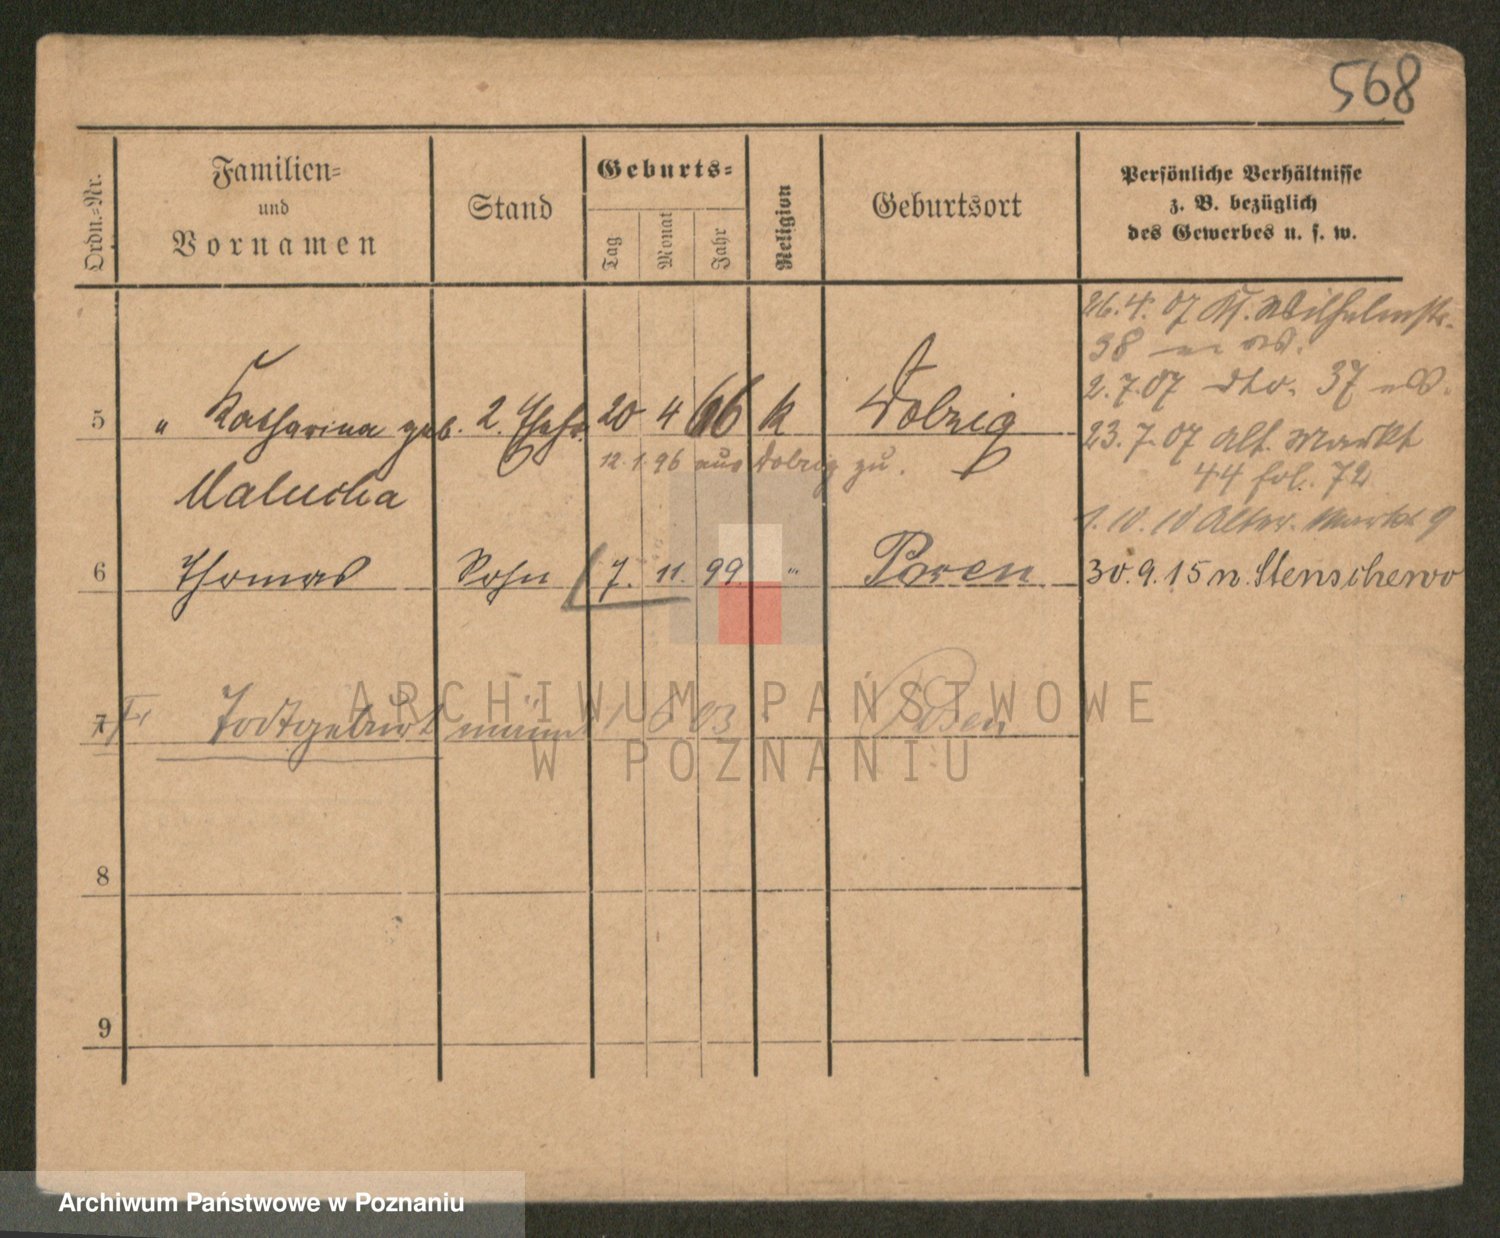 568
Ordn.-Nr.
Familien-
und
Vornamen
Stand
Geburts-
Tag
Monat
Jahr
Religion
Geburtsort
Persönliche Verhältnisse
z. B. bezüglich
des Gewerbes u. s. w.
26. 4. 07 Kl. Wilhelmstr.
38
2. 7. 07 dto. 37
23. 7. 07 Alt. Markt
44 fol. 72
1. 10. 10 Alter Markt 9
30. 9. 15 n. Stenschewo
5 " Katharina geb. 2. Ehefr. 20 4 66 k Dolzig
12. 1. 96 aus Dolzig zu.
Malucha
6 Thomas Sohn 7. 11. 99. " Posen
7 Todtgeburt männl 1 6 03 Posen
8
9
ARCHIWUM PAŃSTWOWE
W POZNANIU
Archiwum Państwowe w Poznaniu